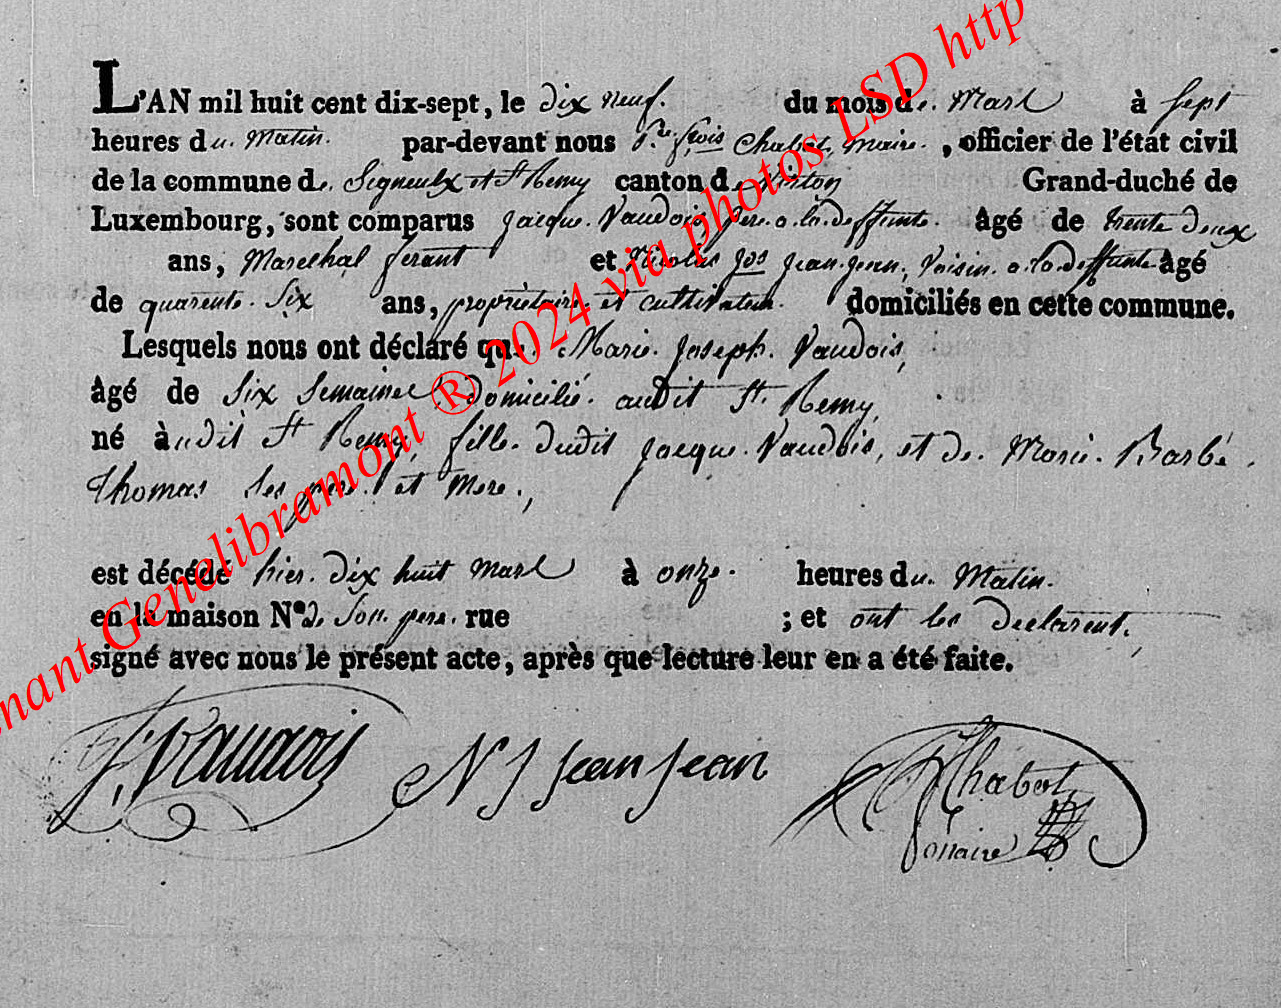 L'AN mil huit cent dix-sept, le dix neuf. du mois de. Mars à sept
heures du. Matin. par-devant nous P.re fçois Chabot, Maire. , officier de l'état civil
de la commune de. Signeulx et St Remy canton de Virton Grand-duché de
Luxembourg, sont comparus Jacque. Vaudois, pere. a. la. deffunte. âgé de trente deux
ans, Marechal ferant et Nicolas Jos Jean.jean, Voisin. a. la. deffunte âgé
de quarente. Six ans, propriétaire. et cultivateur. domiciliés en cette commune.
Lesquels nous ont déclaré que. Marie. Joseph. Vaudois,
âgé de Six Semaines, domicilié. audit St. Remy,
né àudit St Remy, fille. dudit Jacque. Vaudois, et de. Marie. Barbe.
Thomas Ses pere. et Mere.,
est décédé hier. dix huit Mars à onze. heures du. Matin.
en la maison N° de Son. pere. rue ; et ont les declarent,
signé avec nous le présent acte, après que lecture leur en a été faite.
J. Vaudois N J Jean Jean Chabot
maire
nant Genelibramont ® 2024 via photos LSD http